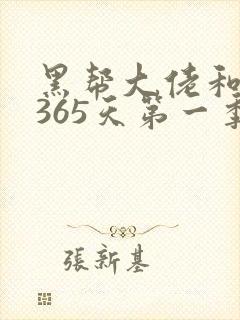 黑帮大佬和
365天第一季
張新基